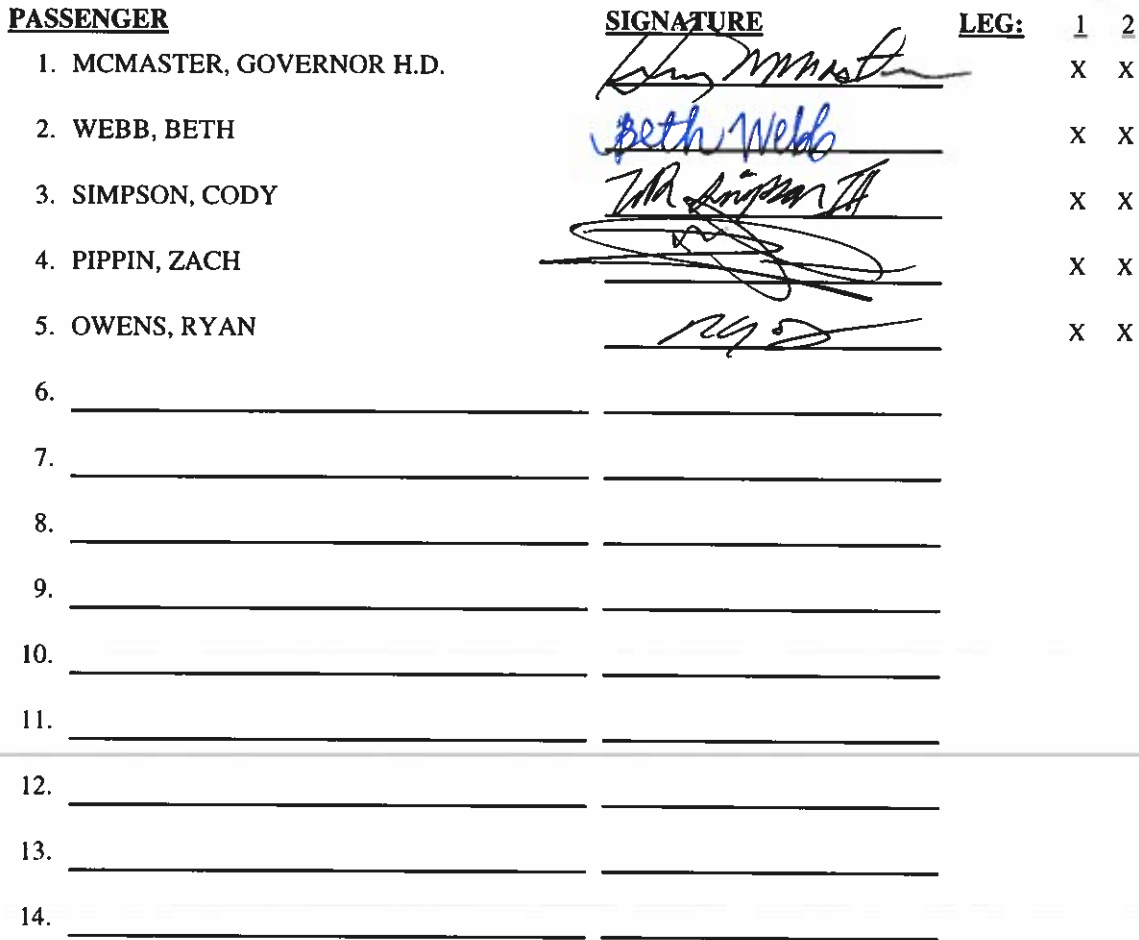 PASSENGER SIGNATURE LEG: 1 2
1. MCMASTER, GOVERNOR H.D. X X
2. WEBB, BETH Beth Webb X X
3. SIMPSON, CODY Simpson III X X
4. PIPPIN, ZACH X X
5. OWENS, RYAN X X
6.
7.
8.
9.
10.
11.
12.
13.
14.